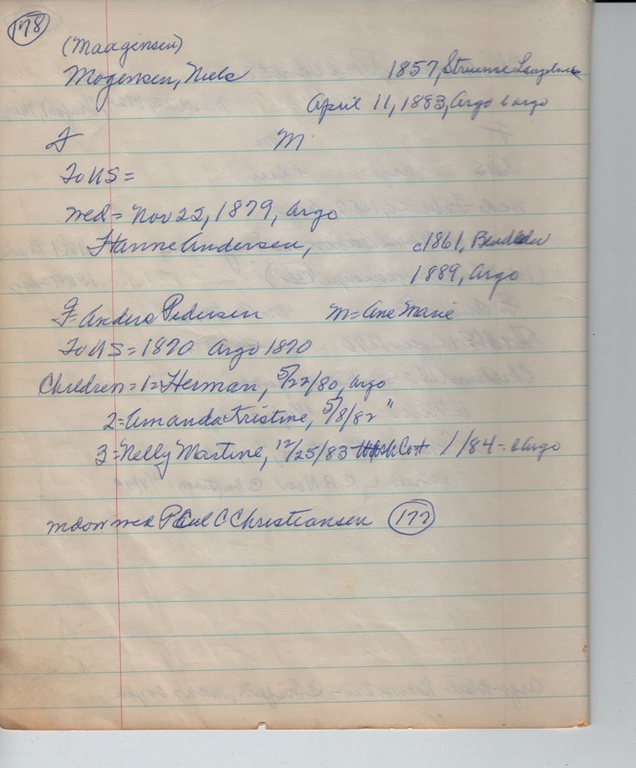 178
(Maagensen)
Mogensen, Niels 1857, Struense Langeland
April 11, 1883, Argo b argo
F M
To US =
med = Nov 22, 1879, Argo
Hanne Andersen, c1861,
1889, Argo
F = Anders Pedersen M = Ane Marie
To US = 1870 Argo 1870
Children = 1 = Herman, 5/22/80, Argo
2 = Amanda Kristine, 5/8/82 "
3 = Nelly Martine, 12/25/83 1/84 - Argo
med Paul C Christiansen 177